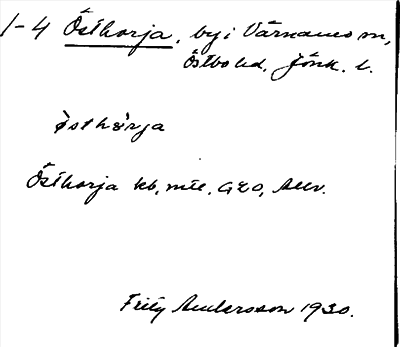 1-4 Östhorja, by i Värnamo sn,
Östbo hd, Jönk. l.
östhørja
Östhorja kb, mtl, GEO,
Fritz Andersson 1930.